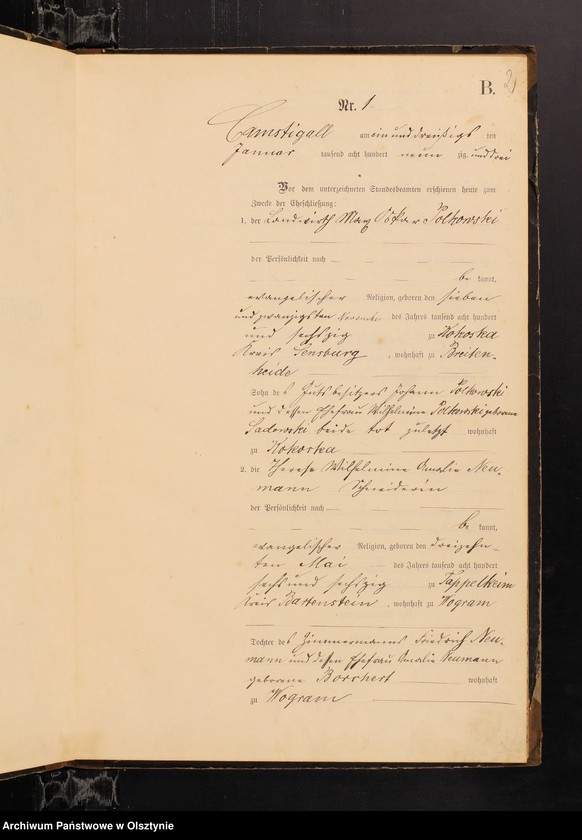 B.
Nr. 1
Camstigall am ein und dreißigsten
Januar tausend acht hundert neun zig und drei
Vor dem unterzeichneten Standesbeamten erschienen heute zum
Zwecke der Eheschließung:
1. der Landwirth Max Oskar Polkowski
der Persönlichkeit nach
be kannt,
evangelischer Religion, geboren den sieben
und zwanzigsten November des Jahres tausend acht hundert
und sechszig zu Kokoska
Kreis Sensburg, wohnhaft zu Breiten-
heide
Sohn des Gutsbesitzers Johann Polkowski
und dessen Ehefrau Wilhelmine Polkowski geborene
Sadowski beide tot zuletzt wohnhaft
zu Kokoska
2. die Therese Wilhelmine Amalie Neu-
mann Schneiderin
der Persönlichkeit nach
be kannt,
evangelischer Religion, geboren den dreizehn-
ten Mai des Jahres tausend acht hundert
sechs und sechszig zu Pappelheim
Kreis Bartenstein, wohnhaft zu Wogram
Tochter des Zimmermanns Friedrich Neu-
mann und dessen Ehefrau Amalie Neumann
geborene Borchert wohnhaft
zu Wogram
Archiwum Państwowe w Olsztynie